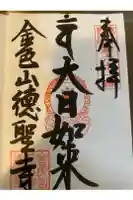 奉拝
大日如来
金邑山徳聖寺